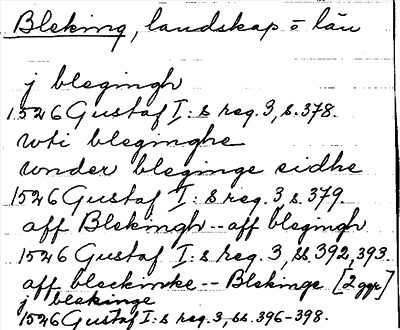 Bleking, landskap o län
j blegingh
1526 Gustaf I: s reg. 3, s. 378.
wti bleginghe
wnder bleginge sidhe
1526 Gustaf I: s reg. 3, s. 379.
aff Blekingh -- aff blegingh
1526 Gustaf I: s reg. 3, ss 392, 393
aff bleckinke -- Blekinge [2 ggr]
j blekinge
1526 Gustaf I: s reg. 3, ss. 396-398.